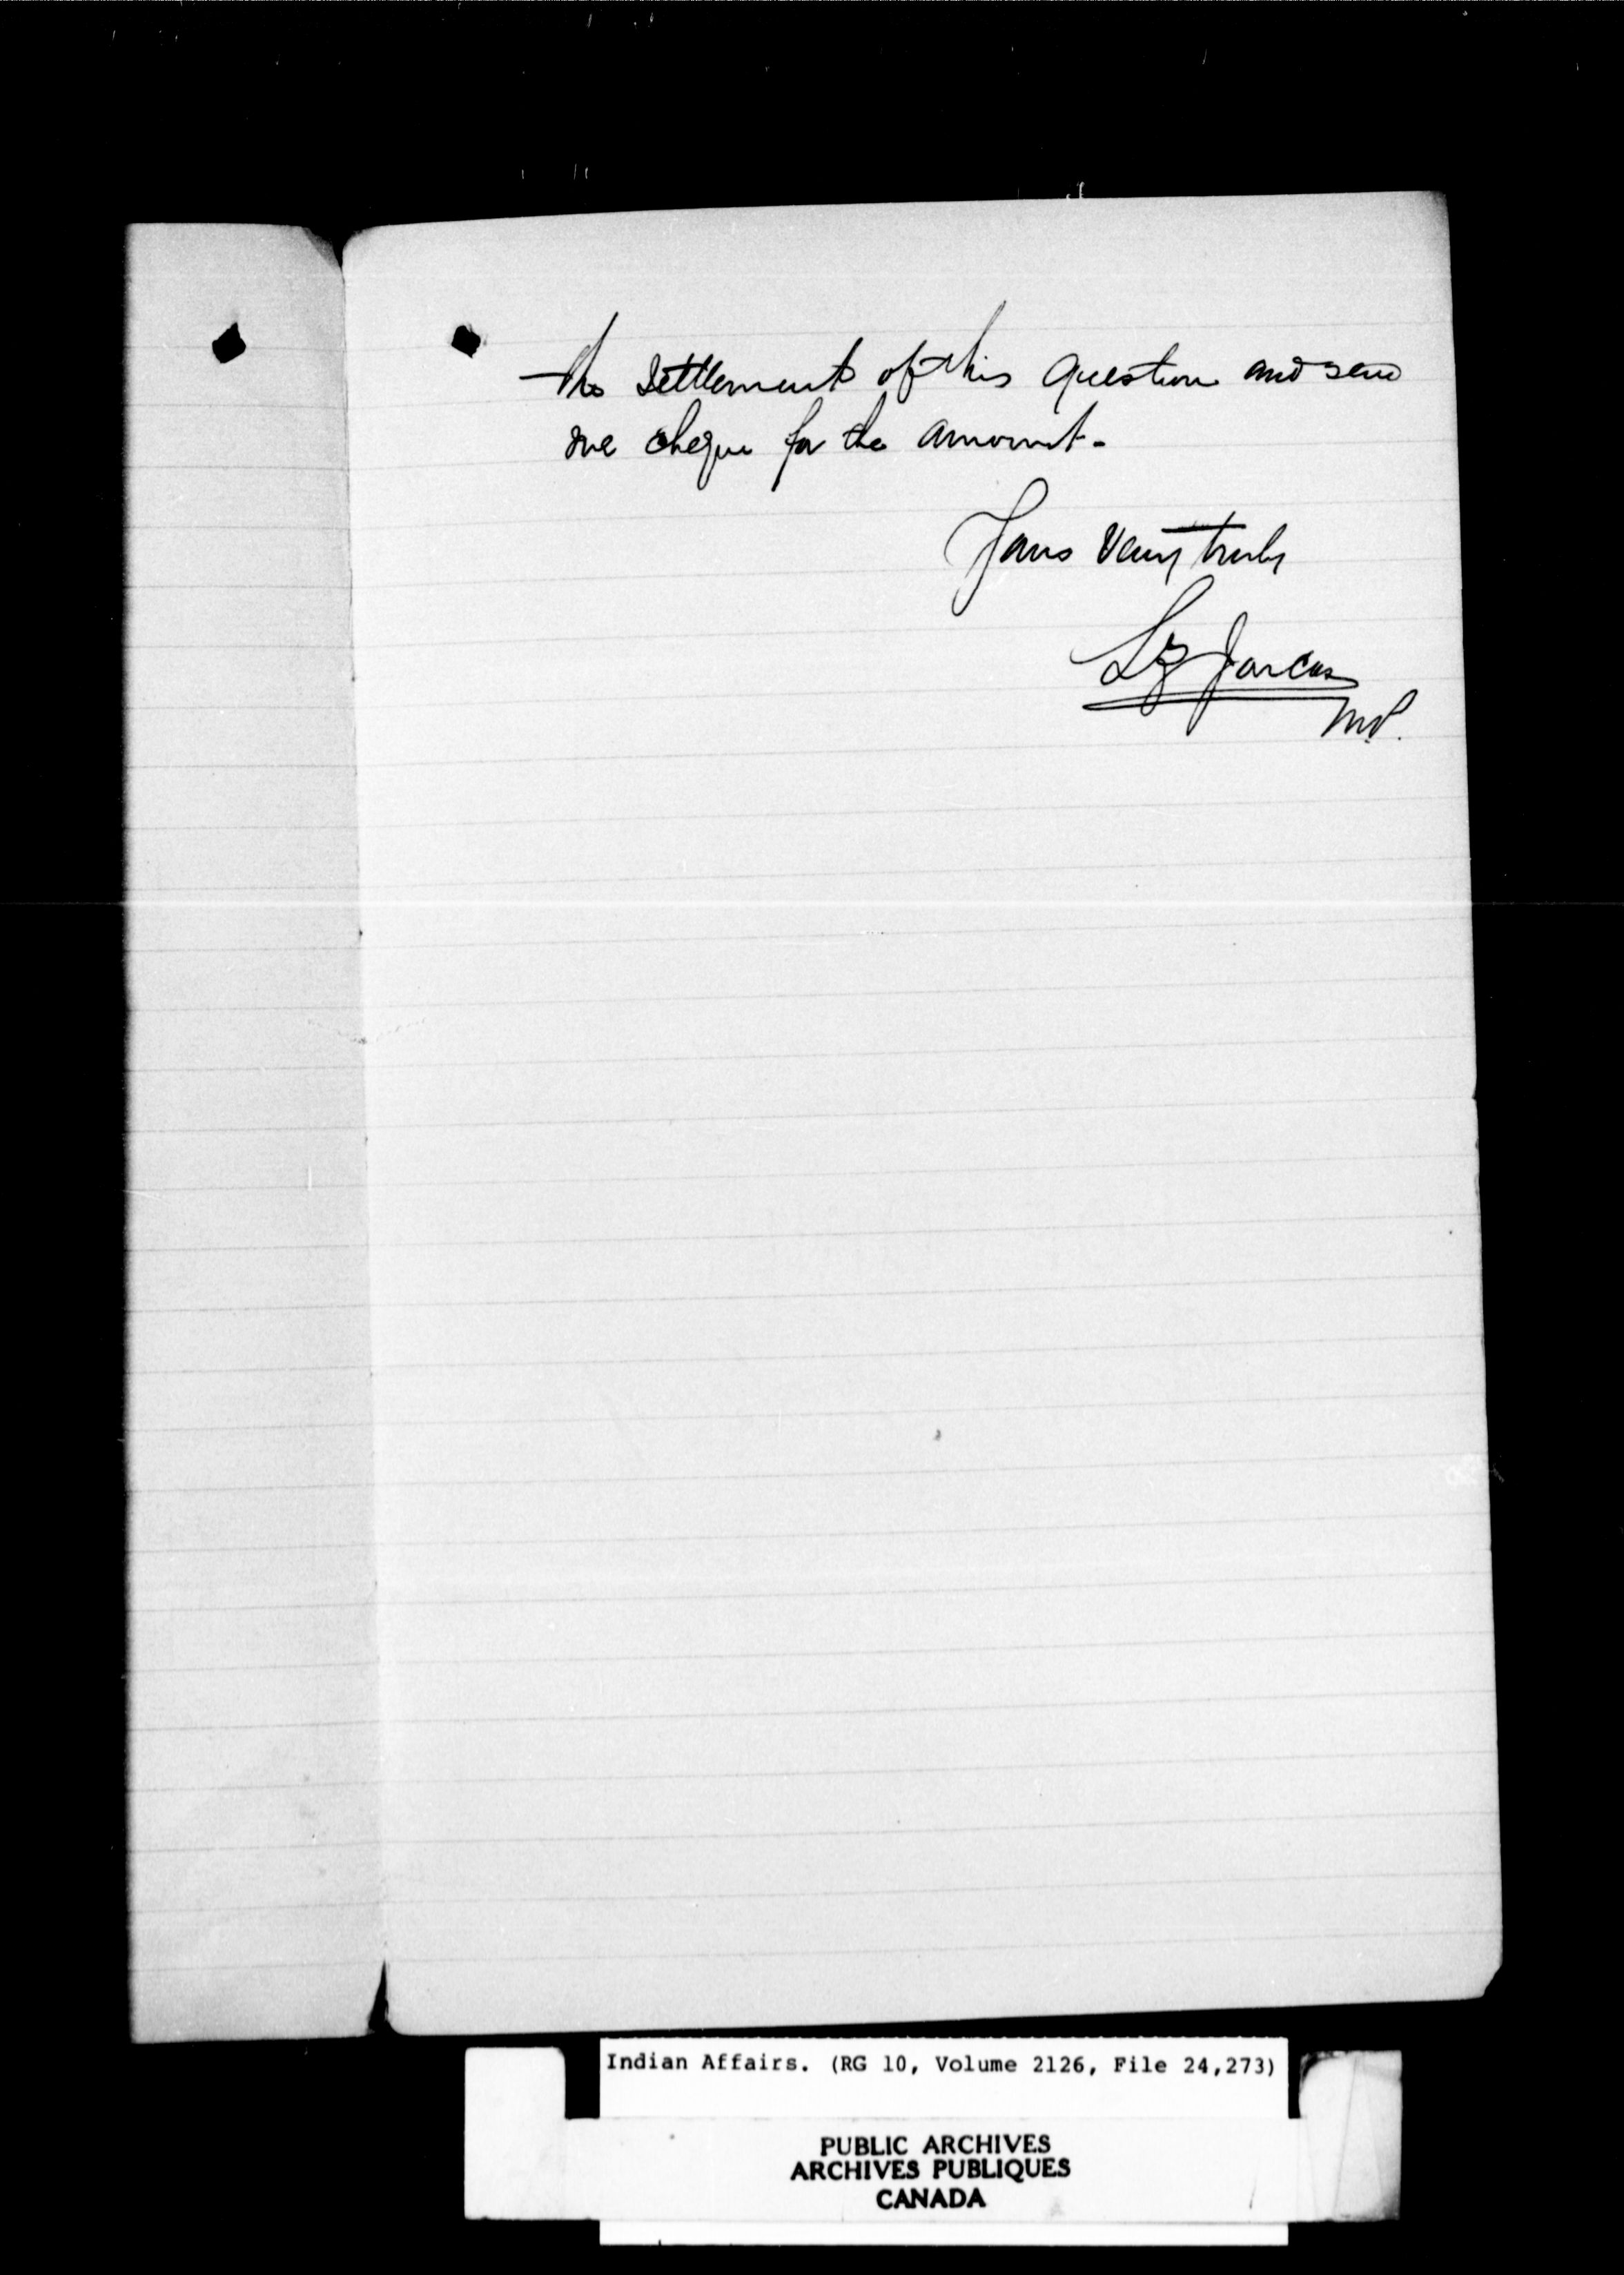 the Settlement of this question and send
me cheque for the amount-
Yours Very truly
M.P.
Indian Affairs. (RG 10, Volume 2126, File 24,273)
PUBLIC ARCHIVES
ARCHIVES PUBLIQUES
CANADA